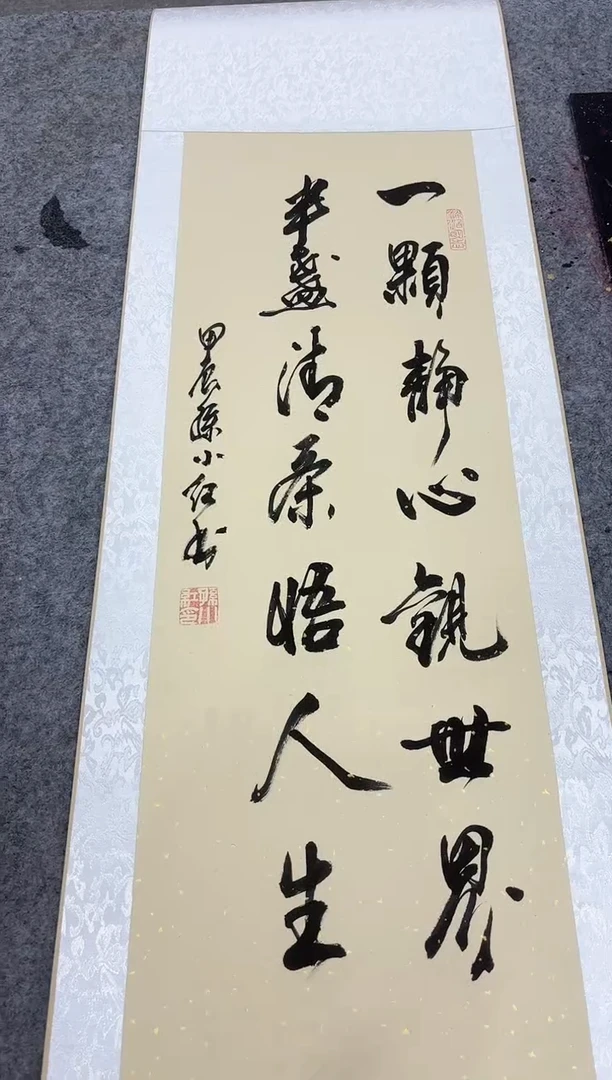 一顆静心觀世界
半盞清茶悟人生
甲辰孫小红书